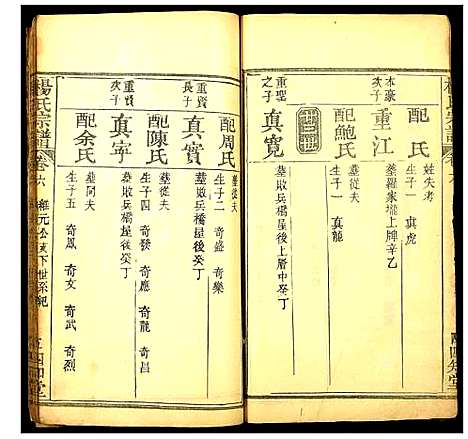 配氏
姓失考
生子一 真虎
本豪
次子
重江
墓羅家壩上牌辛乙
配鮑氏
生子一 真龍
重聖
之子
真寬
墓敗兵橋屋後上層中癸丁
配周氏
墓從夫
生子二 奇盛 奇樂
重賢
長子
真實
墓敗兵橋屋後癸丁
配陳氏
生子四 奇發 奇應 奇龍 奇昌
重賢
次子
真寧
墓敗兵橋屋後癸丁
配余氏
墓同夫
生子五 奇鳳 奇文 奇武 奇烈
楊氏宗譜
卷六
公
下世系紀
四知堂